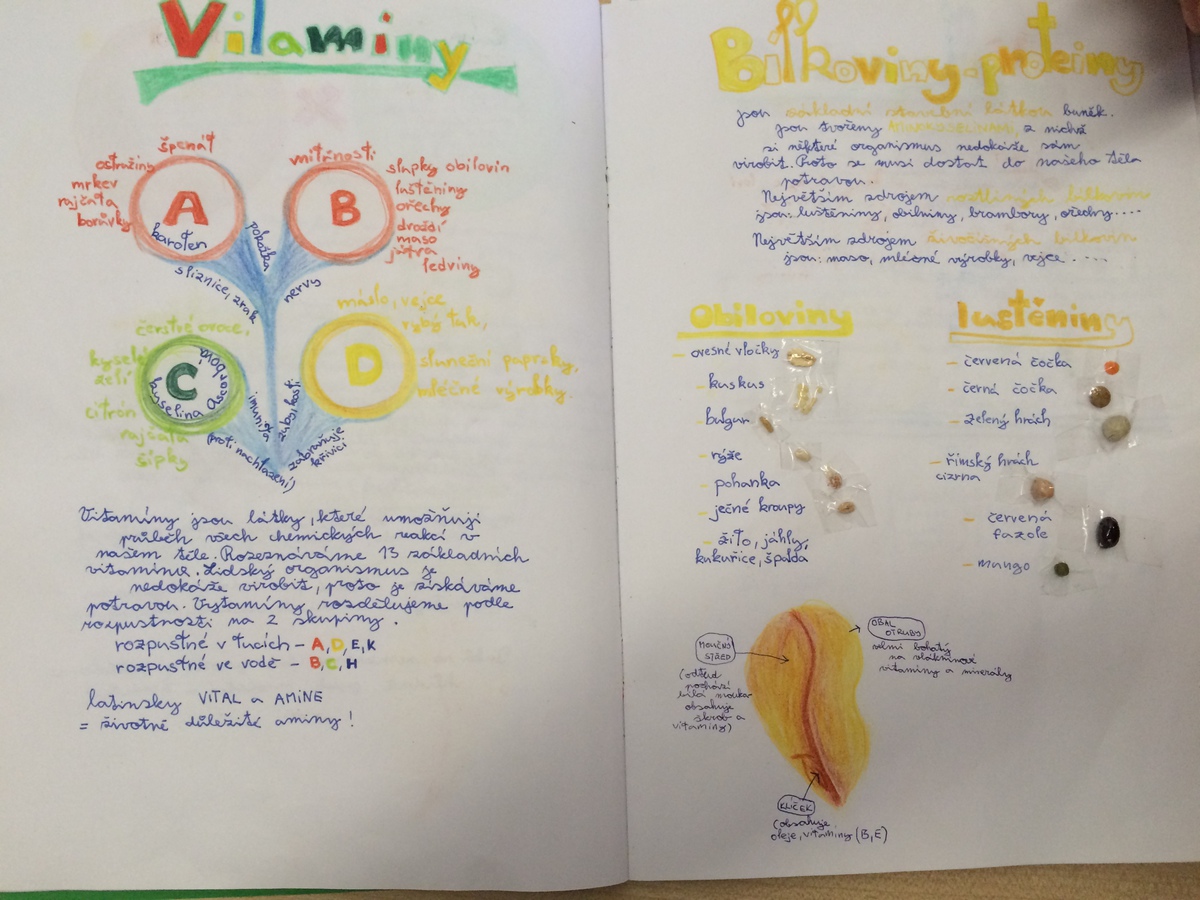 Vitamíny
špenát
ostružiny
mrkev
rajčata
borůvky
A
karoten
vnitřnosti
slupky obilovin
luštěniny
ořechy
droždí
maso
játra
ledviny
B
pokožka
sliznice, zrak
nervy
čerstvé ovoce,
kyselé
zelí
citrón
rajčata
šípky
C
kyselina Ascorbová
máslo, vejce
rybý tuk,
sluneční paprsky,
mléčné výrobky.
D
imunita
(proti nachlazení)
zuby, kosti
zabraňuje
křivici
Vitamíny jsou látky, které umožňují
průběh všech chemických reakcí v
našem těle. Rozeznáváme 13 základních
vitamínů. Lidský organismus je
nedokáže virobit, proto je získáváme
potravou. Vytamíny rozdělujeme podle
rozpustnosti na 2 skupiny.
rozpustné v tucích - A, D, E, K
rozpustné ve vodě - B, C, H
latinsky VITAL a AMINE
= životně důležité aminy!
Bílkoviny - proteiny
jsou základní stavební látkou buněk.
jsou tvořeny AMINOKYSELINAMI, z nichž
si některé organismus nedokáže sám
virobit. Proto se musí dostat do našeho těla
potravou.
Největším zdrojem rostliných bílkovin
jsou: luštěniny, obilniny, brambory, ořechy....
Největším zdrojem živočišných bílkovin
jsou: maso, mléčné výrobky, vejce ....
Obiloviny
- ovesné vločky
- kuskus
- bulgur
- rýže
- pohanka
- ječné kroupy
- žito, jáhly,
kukuřice, špalda
luštěniny
- červená čočka
- černá čočka
- zelený hrách
- římský hrách
cizrna
- červená
fazole
- mungo
MOUČNÝ
STŘED
(odtud
pochází
bílá mouka
obsahuje
škrob a
vitamíny)
OBAL
OTRUBY
velmi bohatý
na vlákninové
vitamíny a minerály
KLÍČEK
(obsahuje
oleje, vitamíny (B, E)